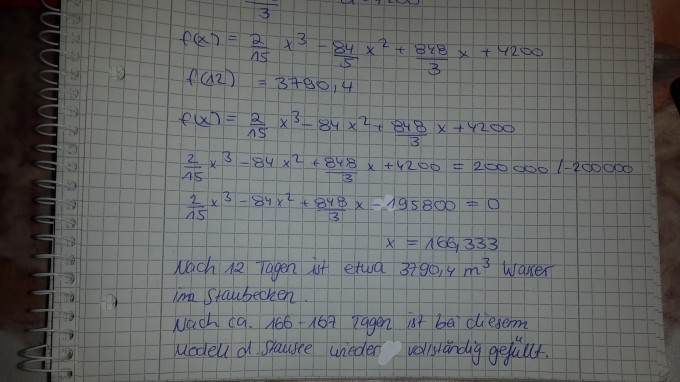 3
f(x) = 2/15 x³ - 84/5 x² + 848/3 x + 4200
f(12) = 3790,4
f(x) = 2/15 x³ - 84 x² + 848/3 x + 4200
2/15 x³ - 84 x² + 848/3 x + 4200 = 200000 /-200000
2/15 x³ - 84x² + 848/3 x - 195800 = 0
x = 166,333
Nach 12 Tagen ist etwa 3790,4 m³ Wasser
im Staubecken.
Nach ca. 166 - 167 Tagen ist bei diesem
Modell d. Stausee wieder vollständig gefüllt.